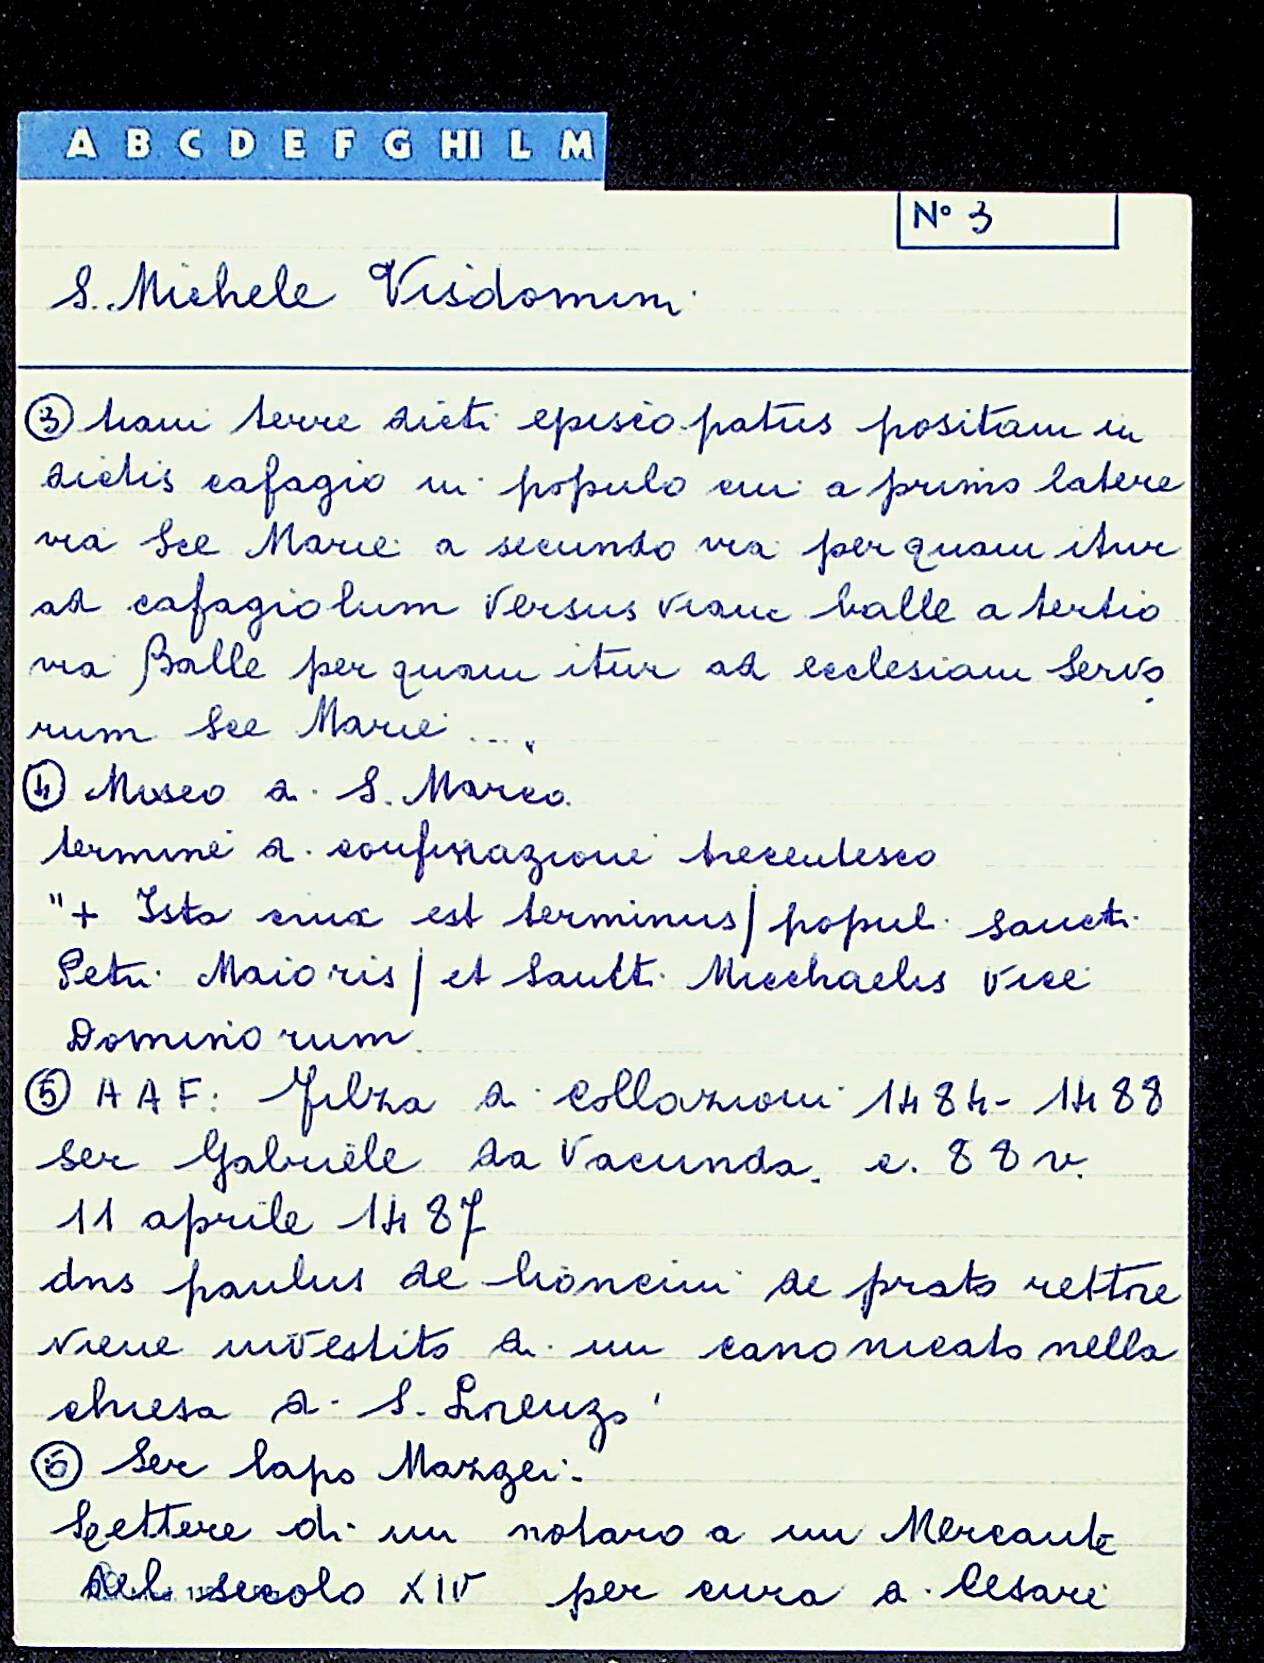 A B C D E F G HI L M
N° 3
S. Michele Visdomini
③ tiam terre dicti episcopatus positam in
dictis cafagio in populo cui a primo latere
via Sce Marie a secundo via per quam itur
ad cafagiolum versus viam balle a tertio
via Balle per quam itur ad ecclesiam Servo
rum Sce Marie ....
④ Museo di S. Marco.
termine di confinazione trecentesco
"+ Ista crux est terminus/ popul. sancti
Petri Maioris/ et Santti Micchaelis Vice
Dominorum
⑤ A A F: Filza di collazioni 1484-1488
ser Gabriele da Vacunda. c. 88 v.
11 aprile 1487
dns paulus de de prato rettore
viene investito di un canonicato nella
chiesa di S. Lorenzo
⑥ Ser Lapo Mazzei:
Lettere di un notaro a un Mercante
del secolo XIV per cura di Cesare